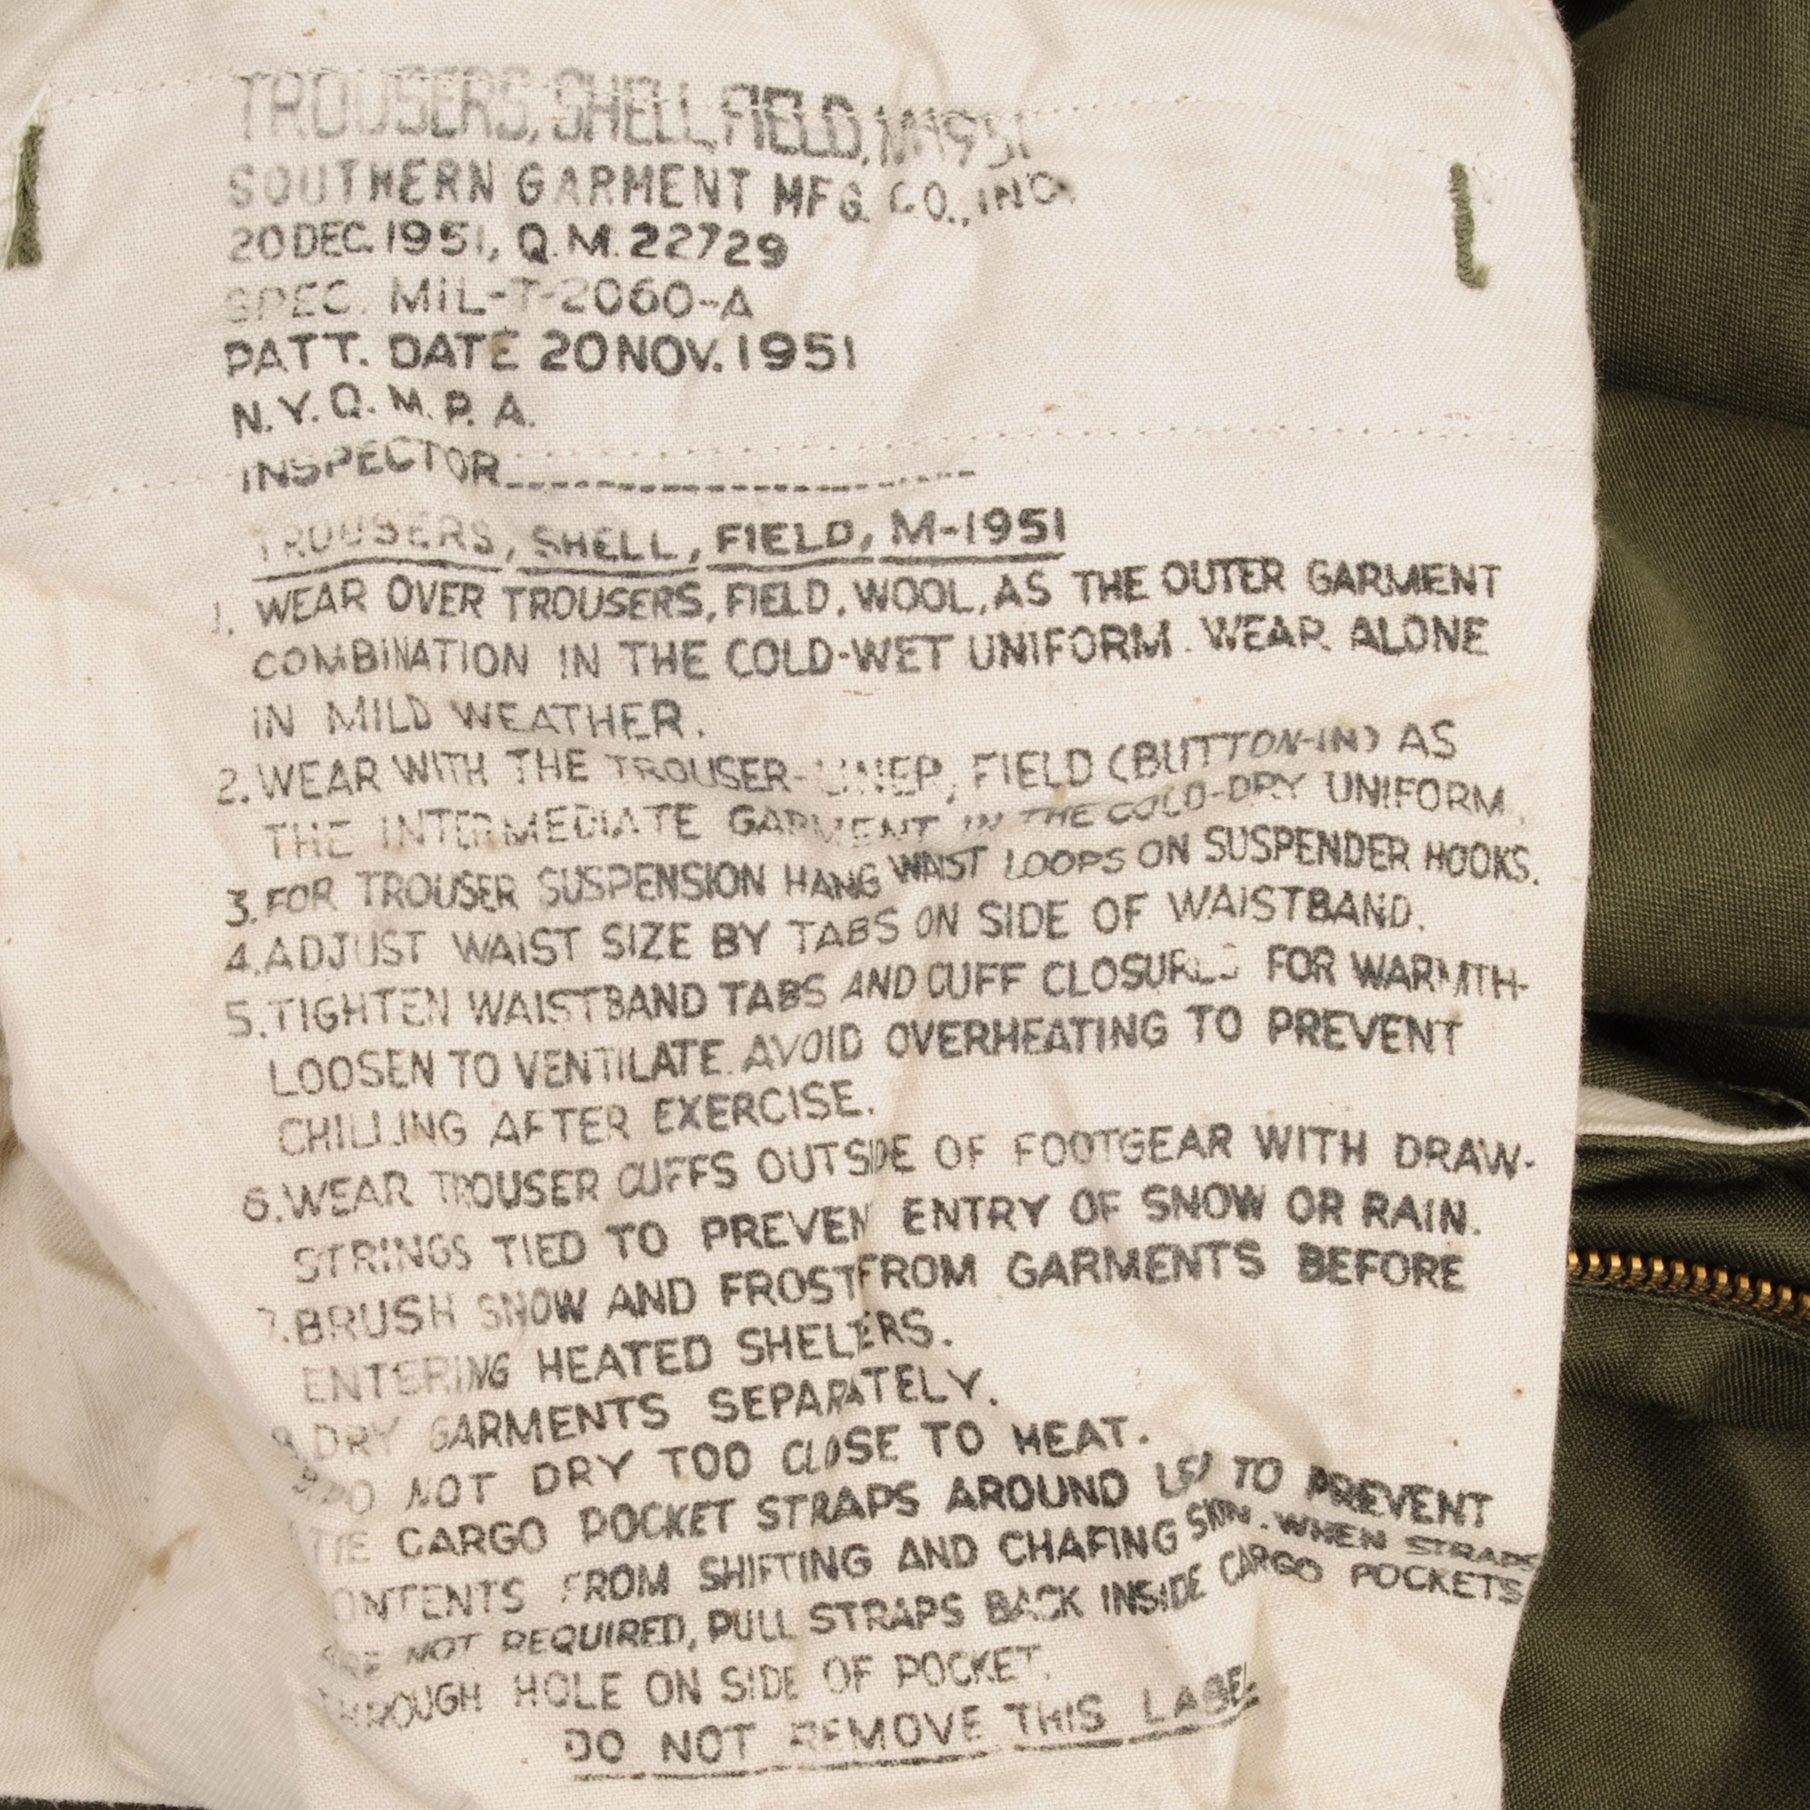 TROUSERS, SHELL, FIELD, M-1951
SOUTHERN GARMENT MFG. CO., INC.
20 DEC. 1951, Q.M. 22729
SPEC. MIL-T-2060-A
PATT. DATE 20 NOV. 1951
N.Y.Q.M.P.A.
INSPECTOR
TROUSERS, SHELL, FIELD, M-1951
1. WEAR OVER TROUSERS, FIELD, WOOL, AS THE OUTER GARMENT
COMBINATION IN THE COLD-WET UNIFORM. WEAR ALONE
IN MILD WEATHER.
2. WEAR WITH THE TROUSER-LINER, FIELD (BUTTON-IN) AS
THE INTERMEDIATE GARMENT IN THE COLD-DRY UNIFORM.
3. FOR TROUSER SUSPENSION HANG WAIST LOOPS ON SUSPENDER HOOKS.
4. ADJUST WAIST SIZE BY TABS ON SIDE OF WAISTBAND.
5. TIGHTEN WAISTBAND TABS AND CUFF CLOSURES FOR WARMTH-
LOOSEN TO VENTILATE. AVOID OVERHEATING TO PREVENT
CHILLING AFTER EXERCISE.
6. WEAR TROUSER CUFFS OUTSIDE OF FOOTGEAR WITH DRAW-
STRINGS TIED TO PREVEN ENTRY OF SNOW OR RAIN.
7. BRUSH SNOW AND FROST FROM GARMENTS BEFORE
ENTERING HEATED SHELTERS.
8. DRY GARMENTS SEPARATELY.
9. DO NOT DRY TOO CLOSE TO HEAT.
TIE CARGO POCKET STRAPS AROUND LEG TO PREVENT
CONTENTS FROM SHIFTING AND CHAFING SKIN. WHEN STRAPS
ARE NOT REQUIRED, PULL STRAPS BACK INSIDE CARGO POCKETS
THROUGH HOLE ON SIDE OF POCKET.
DO NOT REMOVE THIS LABEL